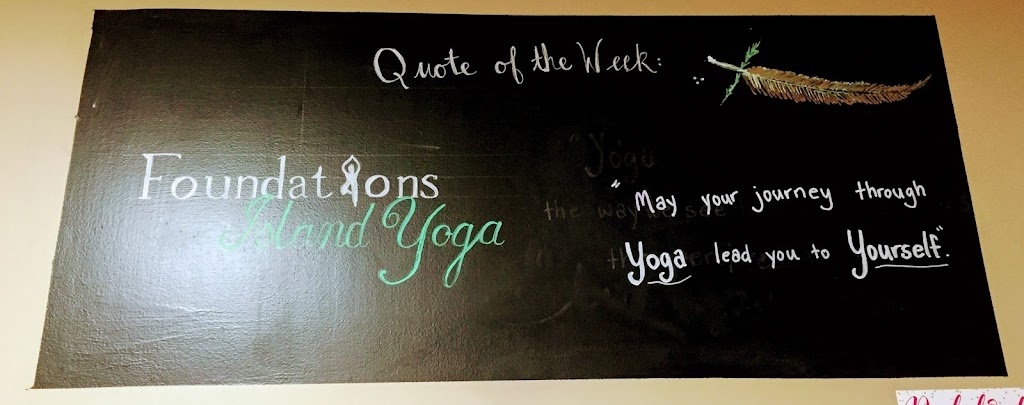 Quote of the Week:
Foundations
Island Yoga
"Yoga
the way see
"May your journey through
Yoga lead you to Yourself".